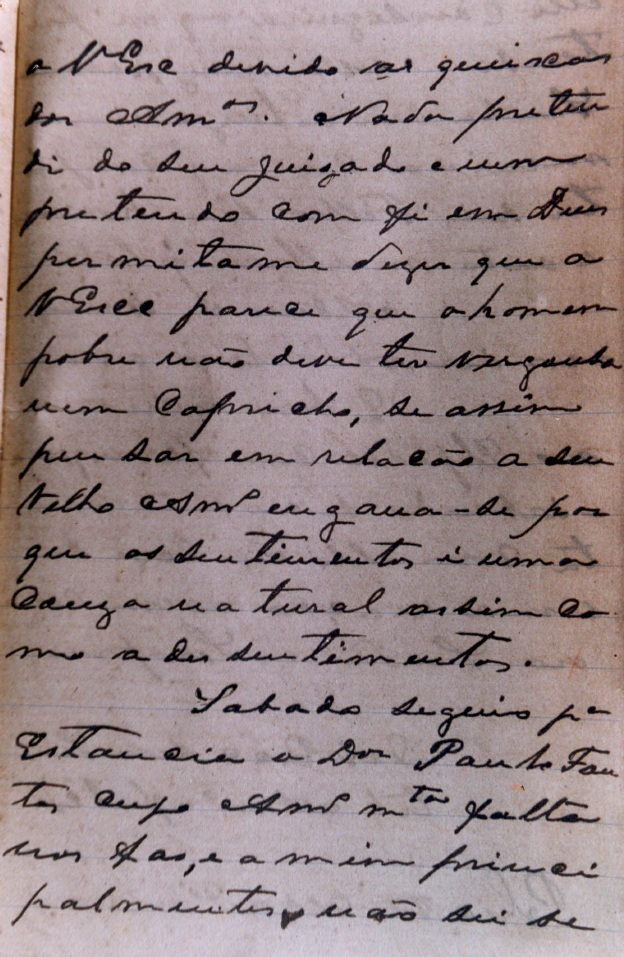 a V Exc devido as queixas
dos Amos. Nada preten
di do seu juizado e nem
pretendo com fé em Deus
permitame dizer que a
V Exce parece que o homem
pobre não deve ter vergonha
nem Capricho, se assim
pensar em relação a seu
Velho Amo engana-se por
que os sentimentos é uma
Couza natural assim co
mo a des sentimentos.
Sabado seguio pa
Estancia o Dor Paulo Fon
tes cujo Amo mta falta
nos faz, e a mim princi
palmentes, não sei se